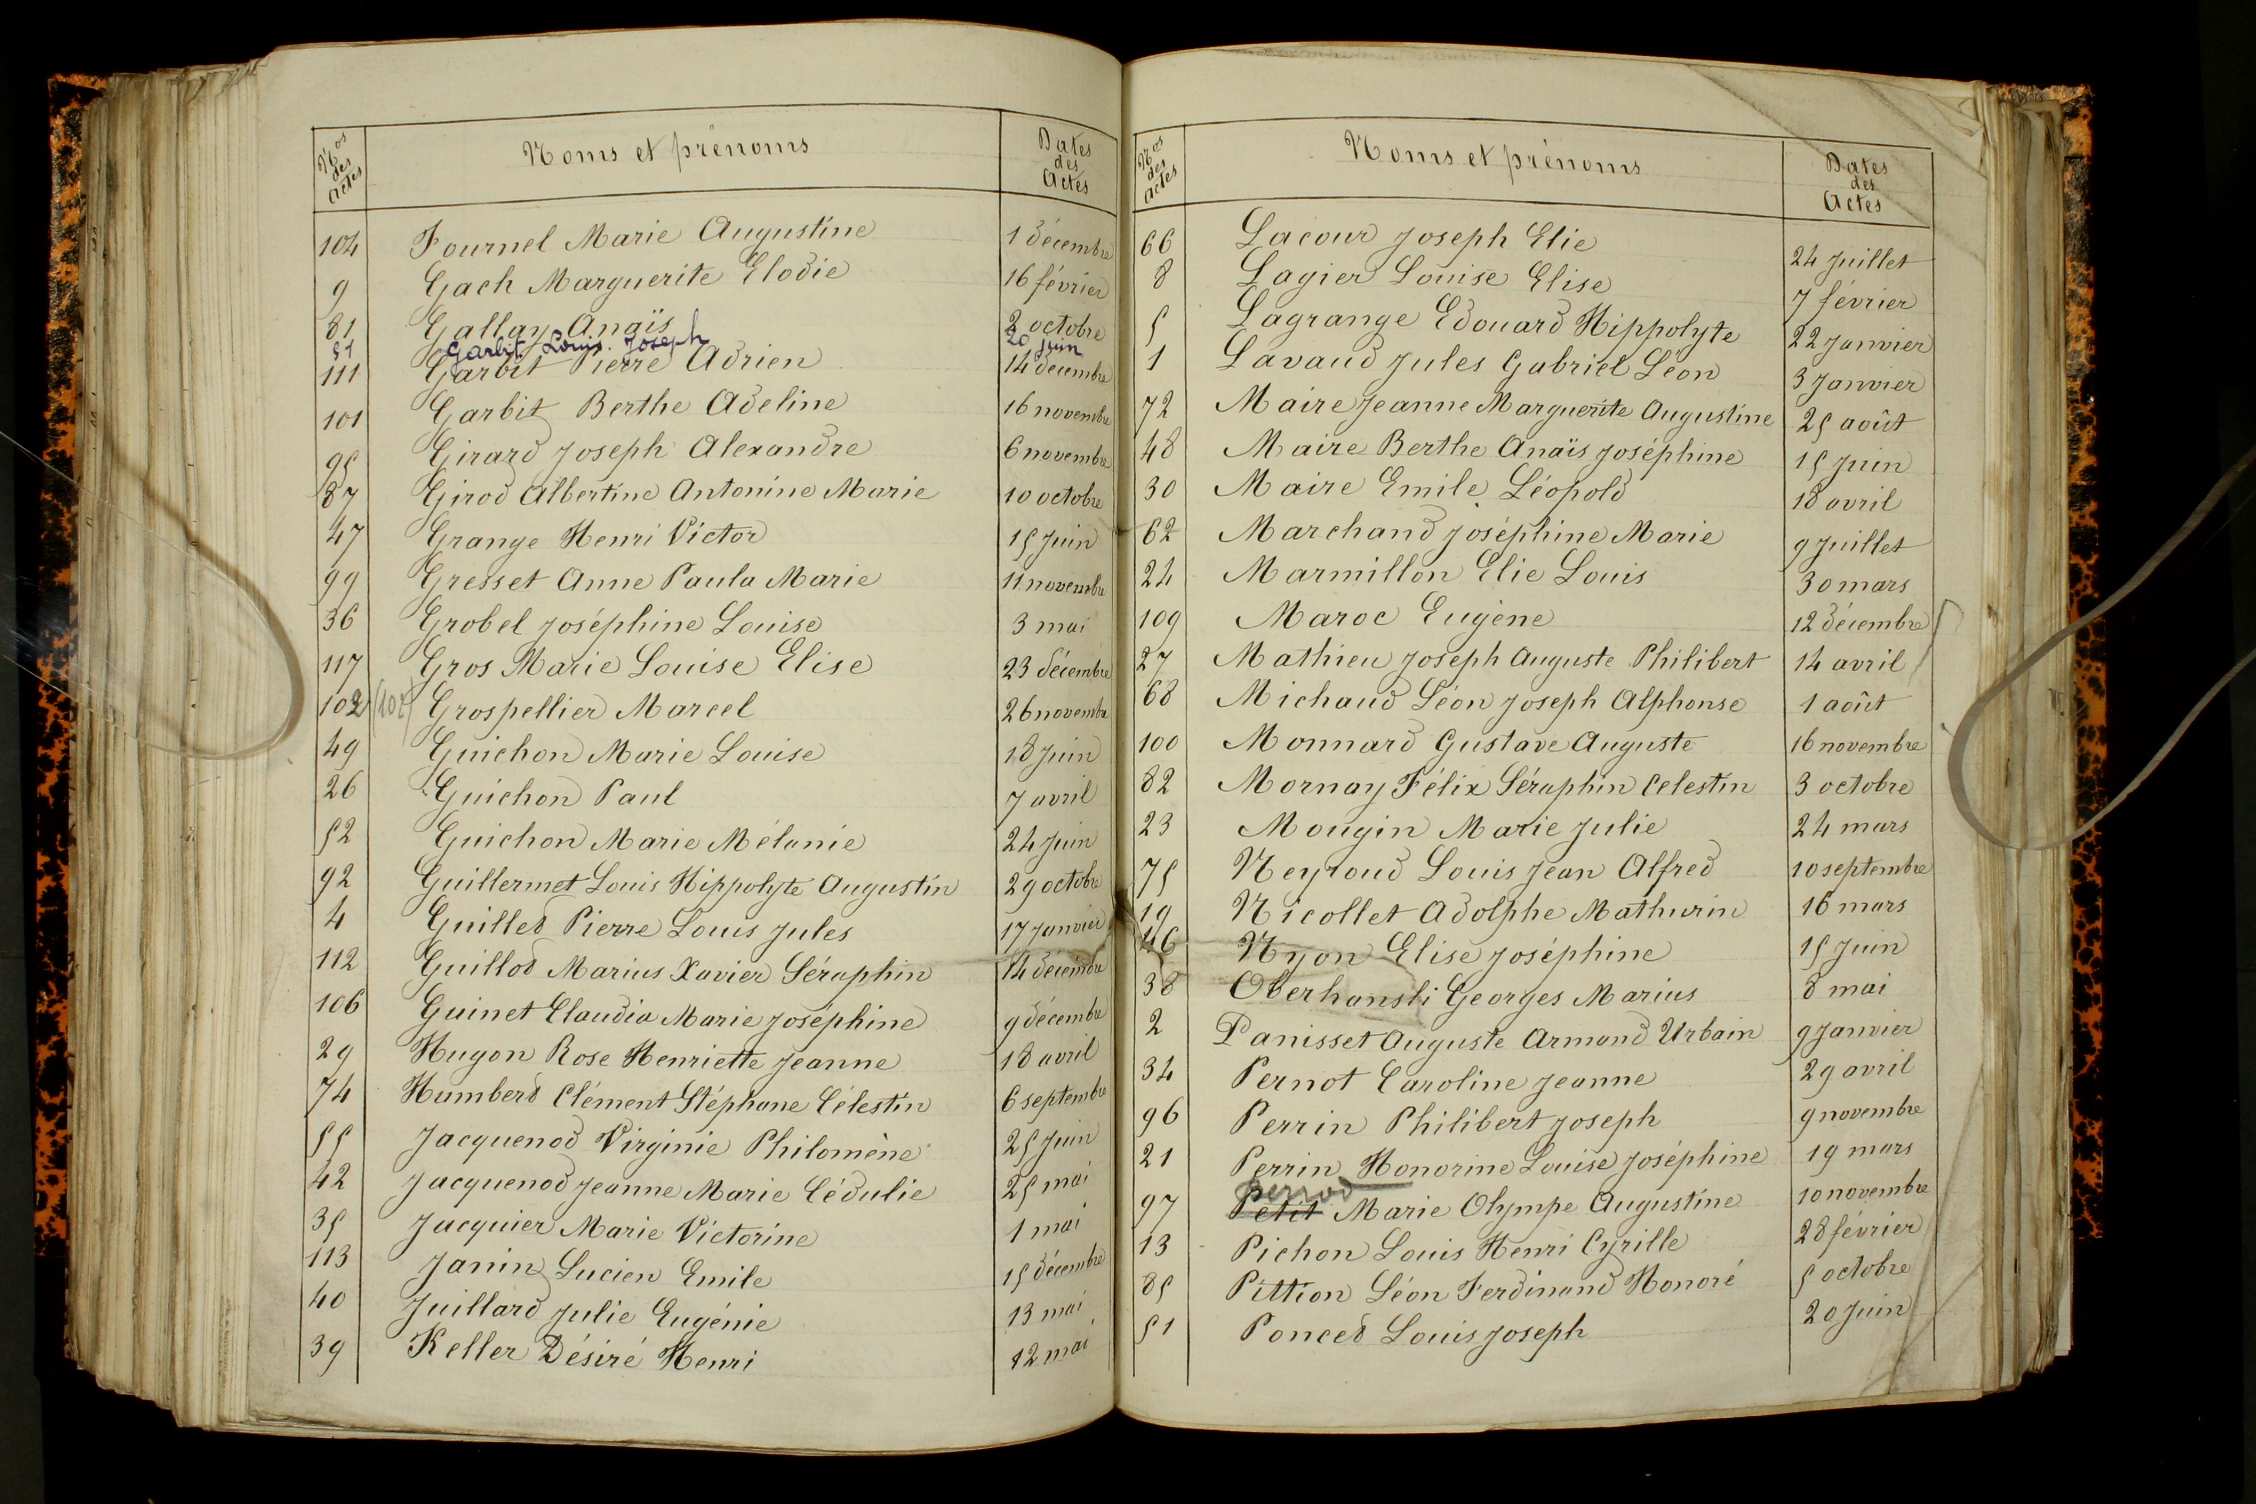 Nos des Actes Noms et prénoms Dates des Actes
104 Fournel Marie Augustine 1 décembre
9 Gach Marguerite Elodie 16 février
81 Gallay Anaïs 2 octobre
51 Garbit Louis Joseph 20 juin
111 Garbit Pierre Adrien 14 décembre
101 Garbit Berthe Adeline 16 novembre
95 Girard Joseph Alexandre 6 novembre
87 Girod Albertine Antonine Marie 10 octobre
47 Grange Henri Victor 15 Juin
99 Gresset Anne Paula Marie 11 novembre
36 Grobel Joséphine Louise 3 mai
117 Gros Marie Louise Elise 23 décembre
102 Grospellier Marcel 26 novembre
49 Guichon Marie Louise 18 Juin
26 Guichon Paul 7 avril
52 Guichon Marie Mélanie 24 Juin
92 Guillermet Louis Hippolyte Augustin 29 octobre
4 Guilled Pierre Louis Jules 17 Janvier
112 Guillod Marius Xavier Séraphin 14 décembre
106 Guinet Claudia Marie Joséphine 9 décembre
29 Hugon Rose Henriette Jeanne 18 avril
74 Humberd Clément Stéphane Célestin 6 septembre
55 Jacquenod Virginie Philomène 25 Juin
42 Jacquenod Jeanne Marie Cédulie 25 mai
35 Jacquier Marie Victorine 1 mai
113 Janin Lucien Emile 15 décembre
40 Juillard Julie Eugénie 13 mai
39 Keller Désiré Henri 12 mai
Nos des Actes Noms et prénoms Dates des Actes
66 Lacour Joseph Elie 24 Juillet
8 Lagier Louise Elise 7 février
5 Lagrange Edouard Hippolyte 22 Janvier
1 Lavaud Jules Gabriel Léon 3 Janvier
72 Maire Jeanne Marguerite Augustine 25 août
48 Maire Berthe Anaïs Joséphine 15 Juin
30 Maire Emile Léopold 18 avril
62 Marchand Joséphine Marie 9 Juillet
24 Marmillon Elie Louis 30 mars
109 Maroc Eugène 12 décembre
27 Mathieu Joseph Auguste Philibert 14 avril
68 Michaud Léon Joseph Alphonse 1 août
100 Monnard Gustave Auguste 16 novembre
82 Mornay Félix Séraphin Celestin 3 octobre
23 Mougin Marie Julie 24 mars
75 Neyroud Louis Jean Alfred 10 septembre
19 Nicollet Adolphe Mathurin 16 mars
46 Nyon Elise Joséphine 15 Juin
38 Oberhansli Georges Marius 8 mai
2 Panisset Auguste Armand Urbain 9 Janvier
34 Pernot Caroline Jeanne 29 avril
96 Perrin Philibert Joseph 9 novembre
21 Perrin Honorine Louise Joséphine 19 mars
perrod
97 Petit Marie Olympe Augustine 10 novembre
13 Pichon Louis Henri Cyrille 28 février
85 Pittion Léon Ferdinand Honoré 5 octobre
51 Ponced Louis Joseph 20 Juin